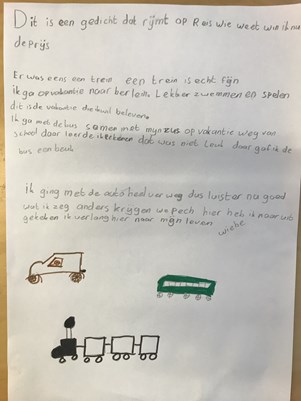 Dit is een gedicht dat rijmt op Reis wie weet win ik nu
de prijs
Er was eens een trein een trein is echt fijn
ik ga op vakantie naar berlein. Lekker zwemmen en spelen
dit is de vakantie die ik wil beleven.
Ik ga met de bus samen met mijn zus op vakantie weg van
school daar leerde ik rekenen dat was niet leuk daar gaf ik de
bus een deuk
ik ging met de auto heel ver weg dus luister nu goed
wat ik zeg anders krijgen we pech hier heb ik naar uit
gekeken ik verlang hier naar mijn leven
wiebe